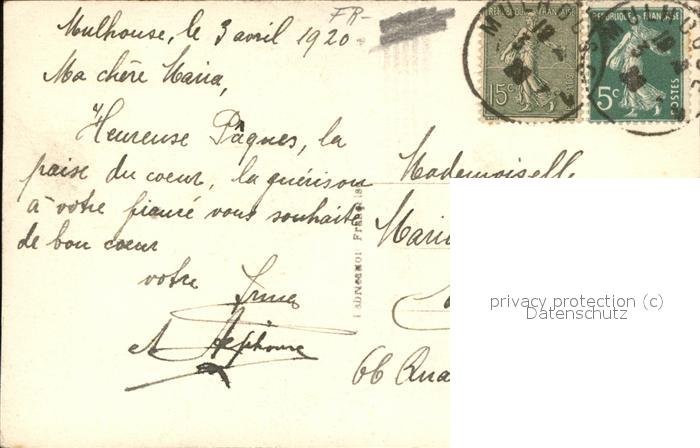 Mulhouse, le 3 avril 1920
FR-
Ma chère Maria,
Heureuse Pâques, la
paise du coeur, la guérison
à votre fiancé vous souhaite
de bon coeur
votre Irma
et
Mademoiselle
66
FABRICATION FRANÇAISE
REPUBLIQUE FRANÇAISE
15c
REPUBLIQUE FRANÇAISE
5c
POSTES
privacy protection (c)
Datenschutz